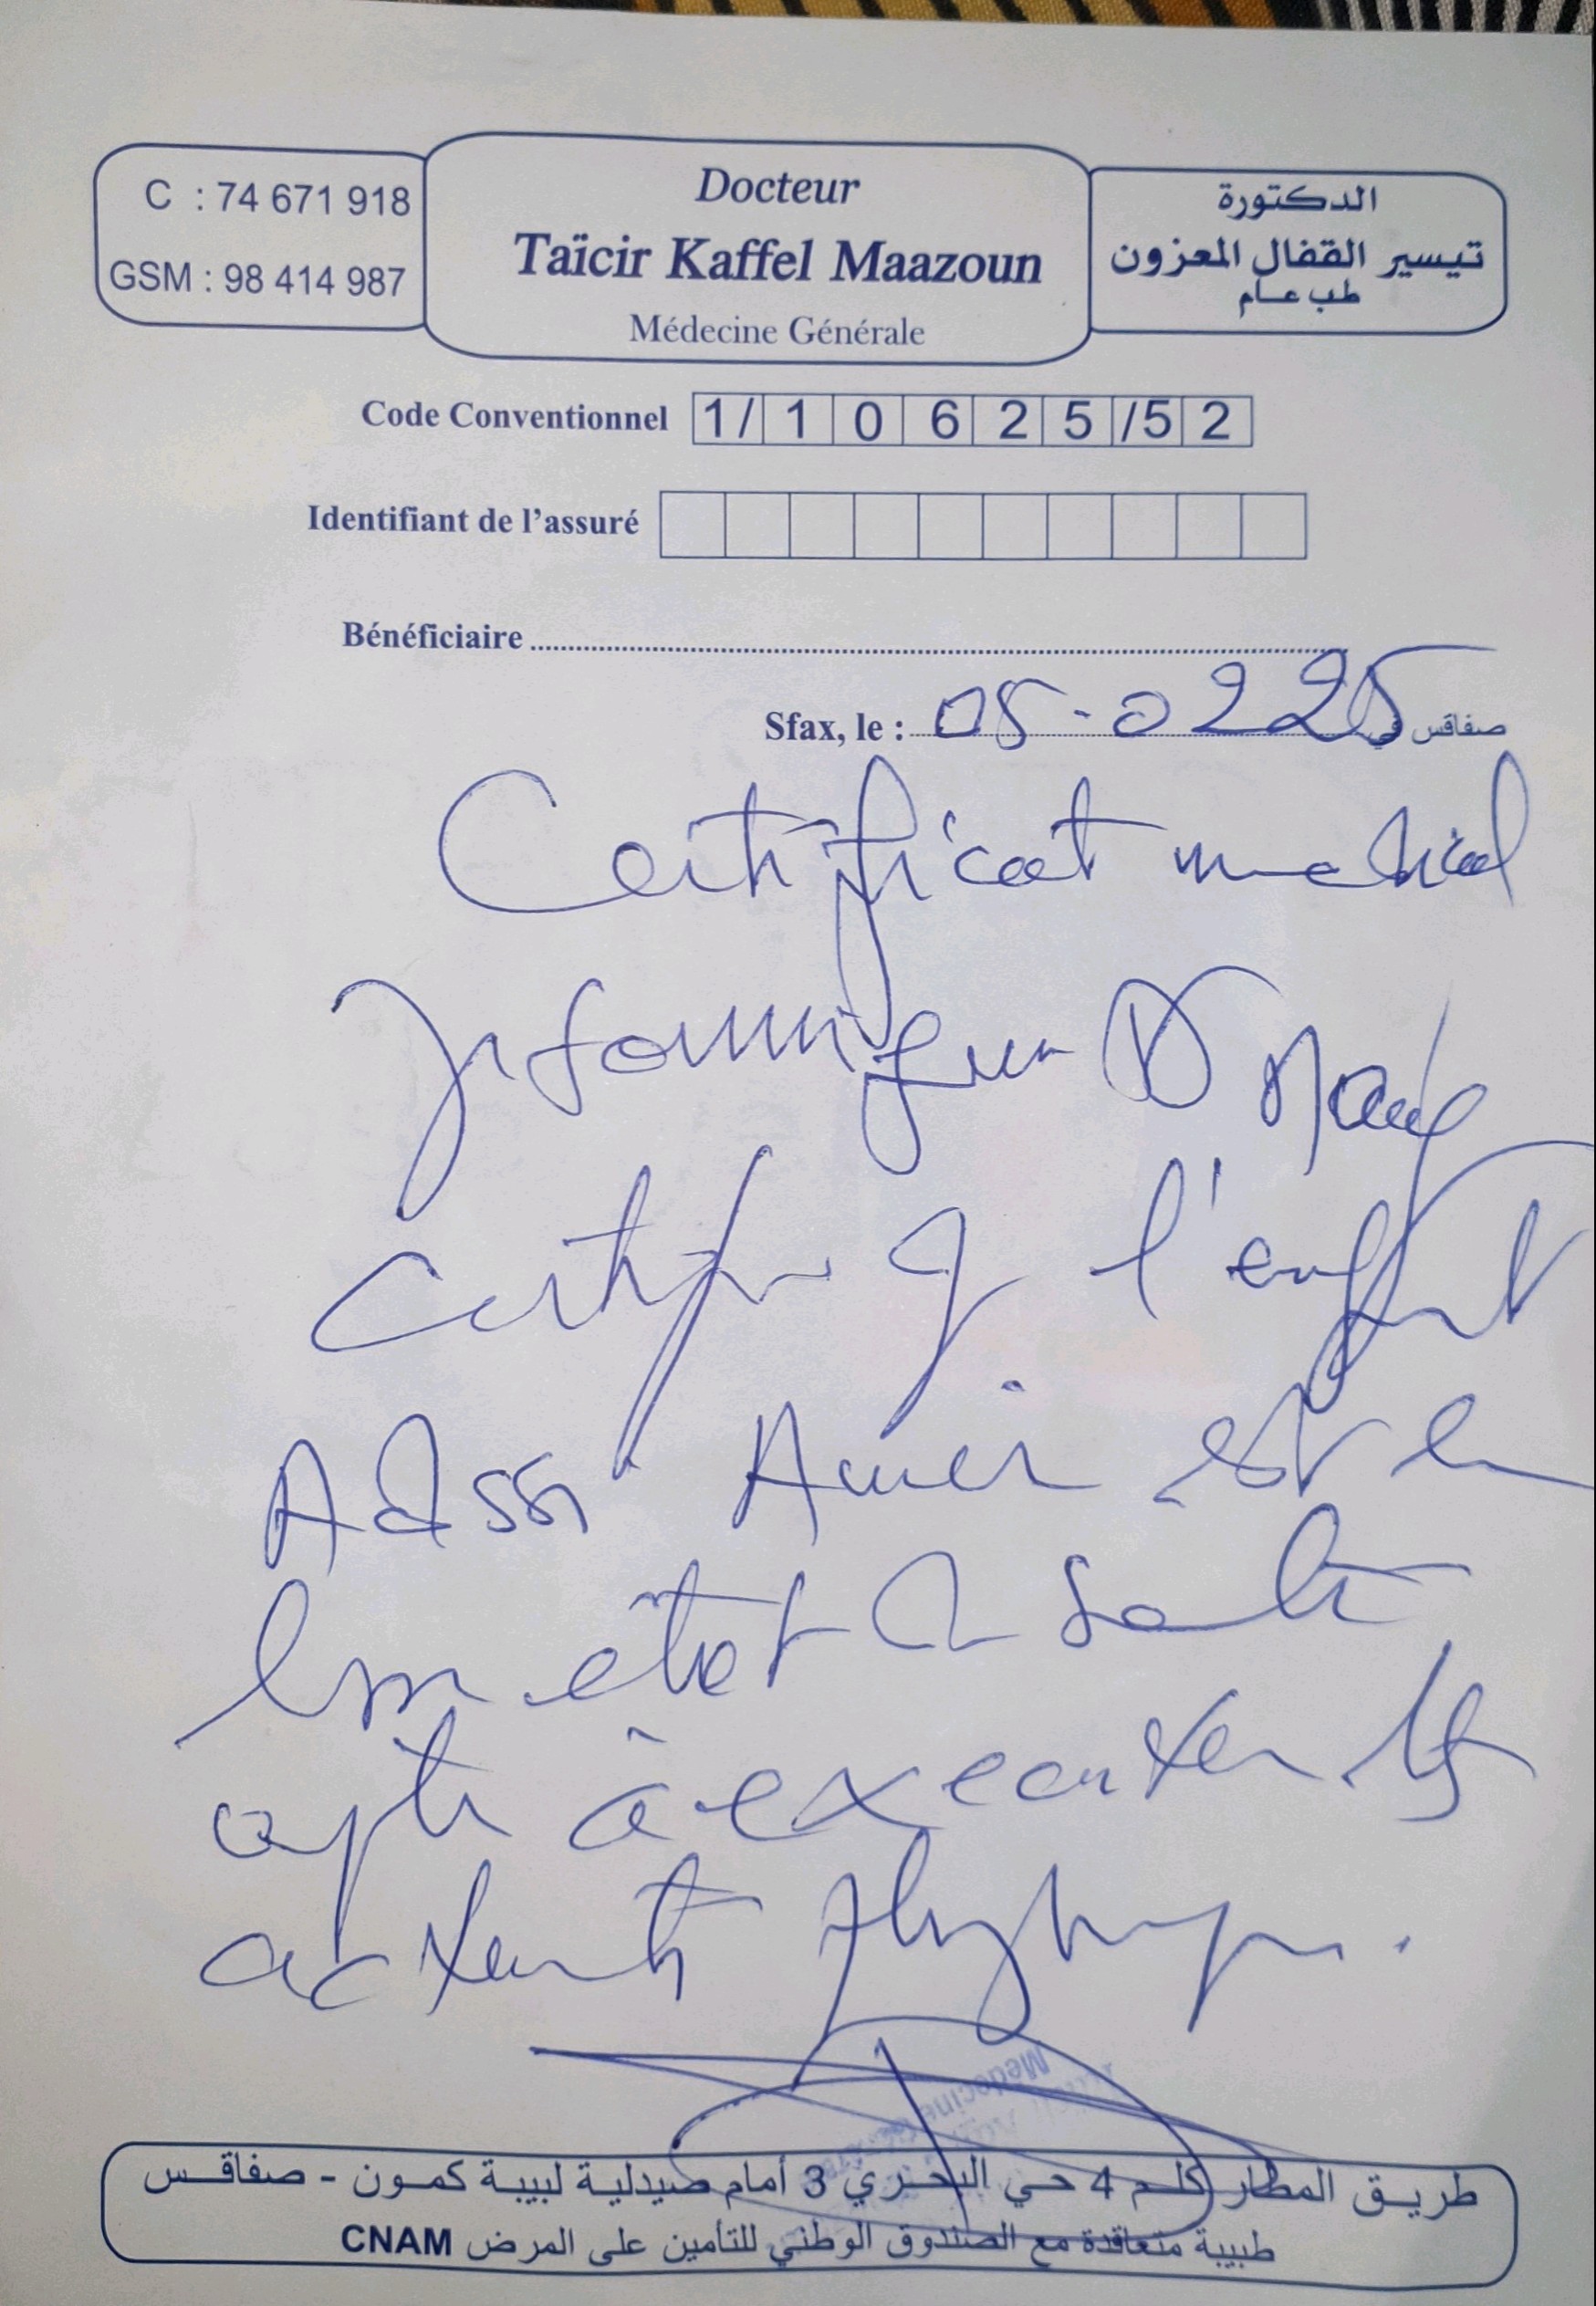 C : 74 671 918
GSM : 98 414 987
Docteur
Taïcir Kaffel Maazoun
Médecine Générale
الدكتورة
تيسير القفال المعزون
طب عام
Code Conventionnel 1/10625/52
Identifiant de l'assuré
Bénéficiaire
Sfax, le : 05-02 25 صفاقس في
Certificat medical
Dr
certifie q l'enfant
Amir est en
bon etat de santé
apte à executer les
activités physiques.
Medecine
طريق المطار كلم 4 حي البحري 3 أمام صيدلية لبيبة كمون - صفاقس
طبيبة متعاقدة مع الصندوق الوطني للتأمين على المرض CNAM